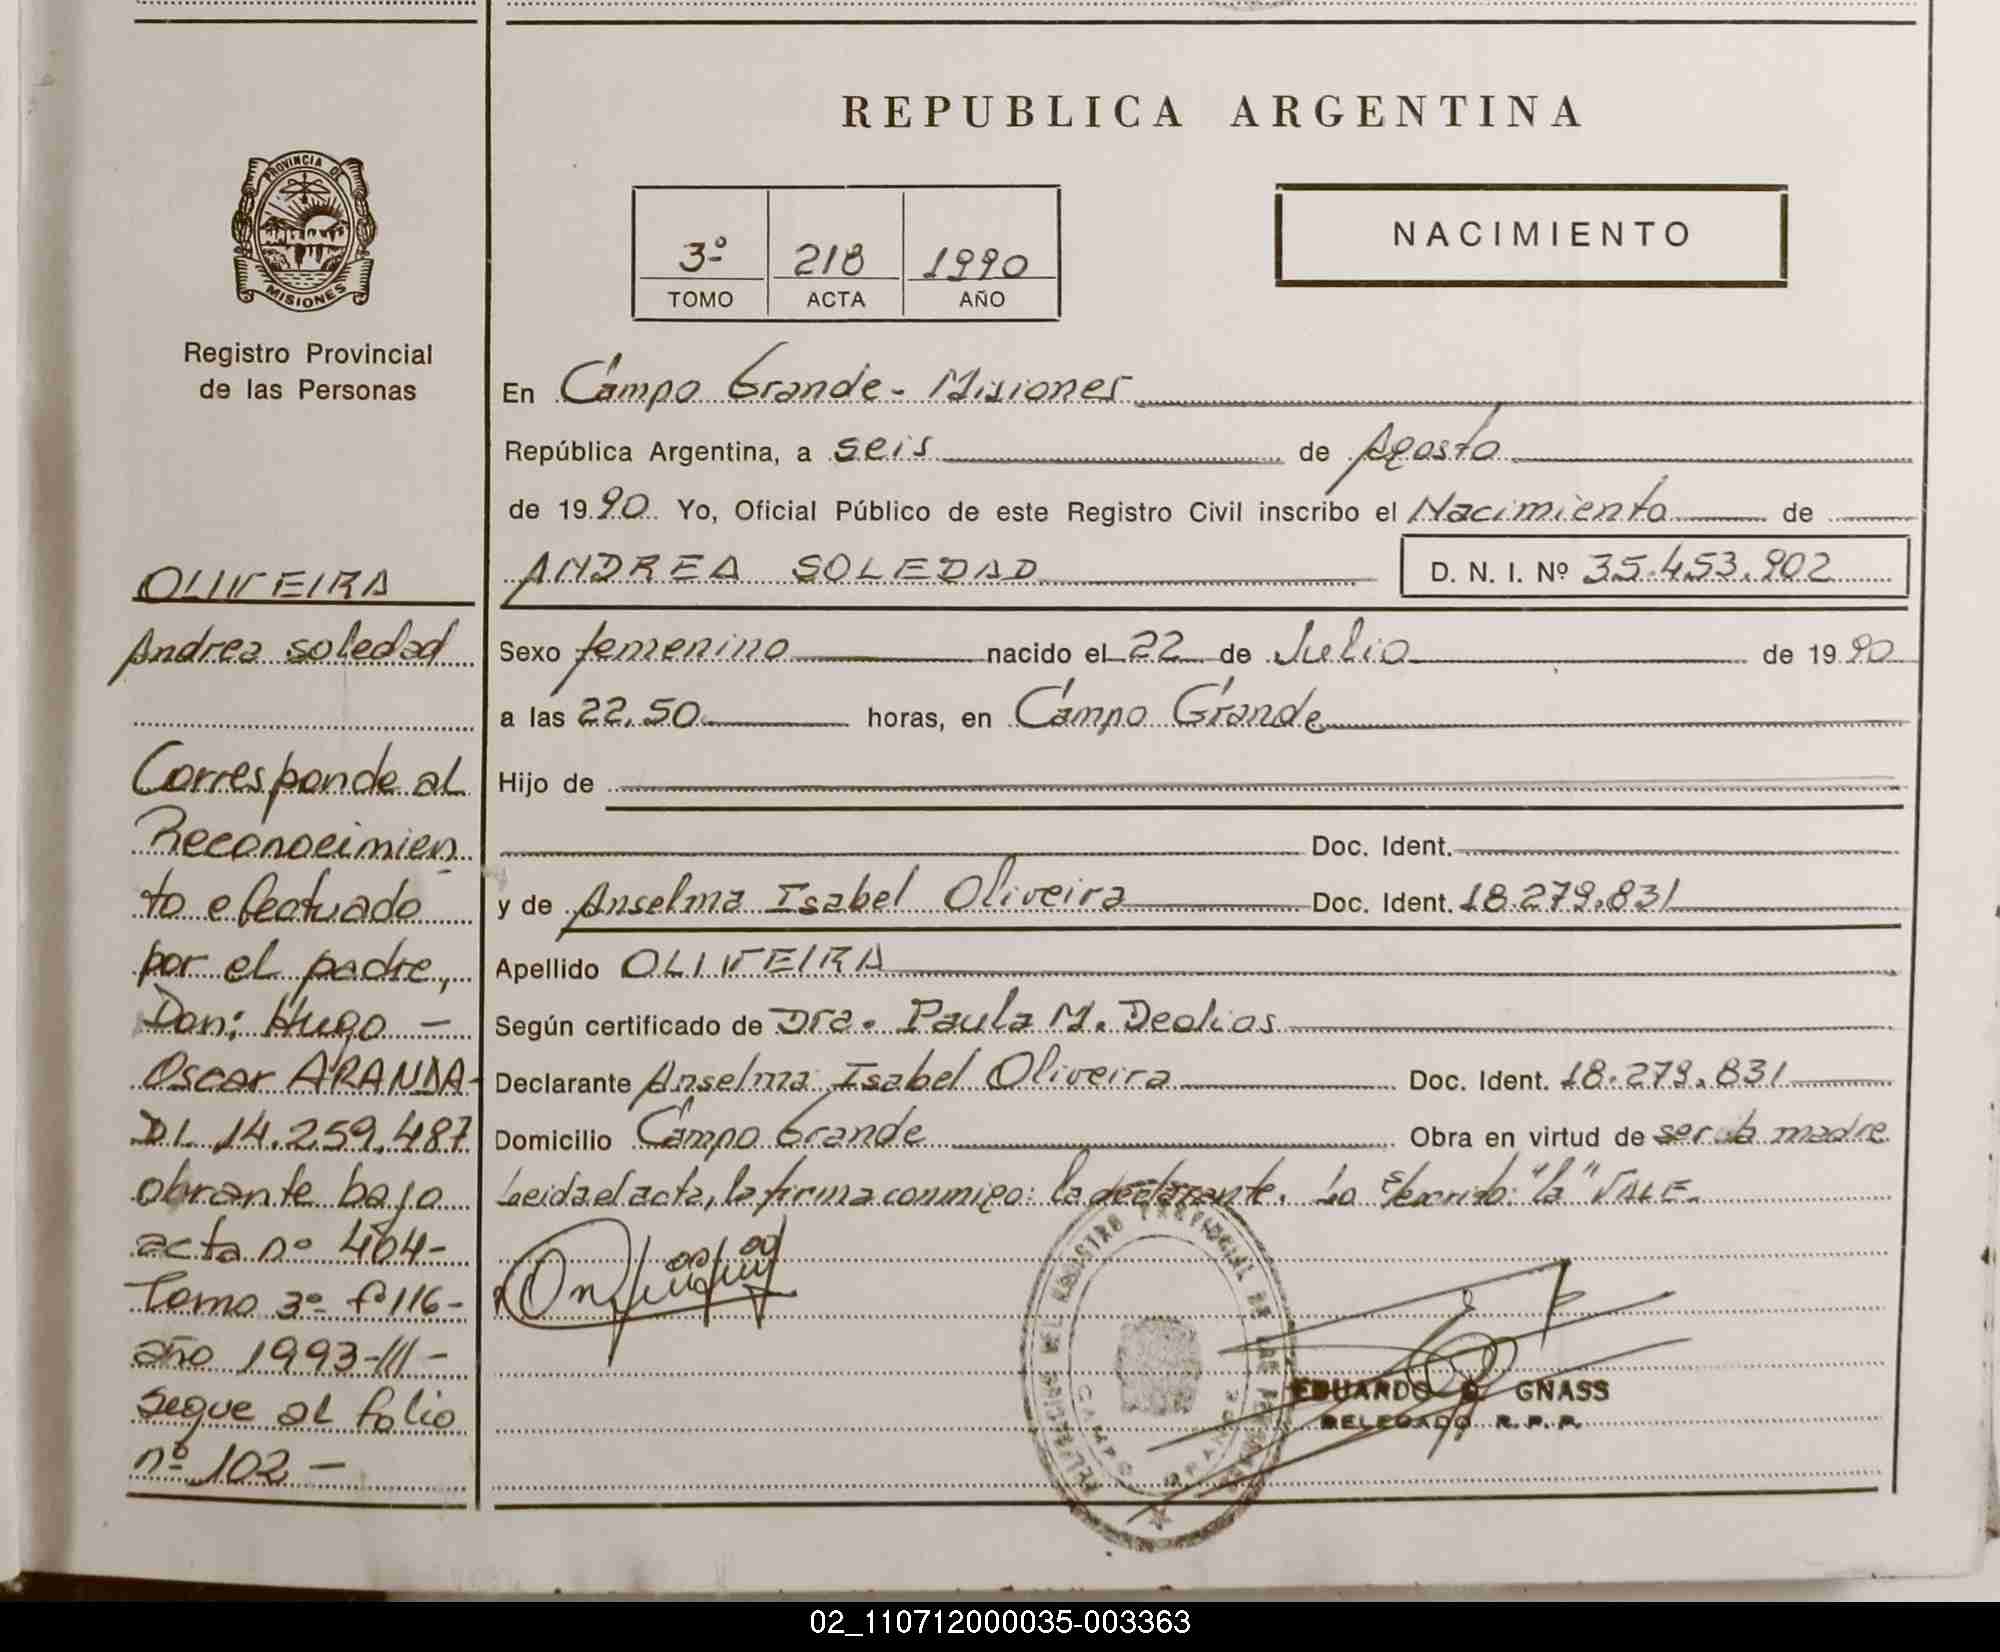 REPUBLICA ARGENTINA
PROVINCIA DE
MISIONES
Registro Provincial
de las Personas
3º 218 1990
TOMO ACTA AÑO
NACIMIENTO
OLIVEIRA
Andrea Soledad
Corresponde al
Reconocimien
to efectuado
por el padre,
Don: Hugo -
Oscar ARANDA-
DI. 14.259.487
obrante bajo
acta nº 404-
Tomo 3º fº116-
año 1993-///-
segue al folio
nº 102 -
En Campo Grande - Misiones
República Argentina, a seis de Agosto
de 1990 Yo, Oficial Público de este Registro Civil inscribo el Nacimiento de
ANDREA SOLEDAD D. N. I. Nº 35.453.902
Sexo femenino nacido el 22 de Julio de 1990
a las 22,50 horas, en Campo Grande
Hijo de
Doc. Ident.
y de Anselma Isabel Oliveira Doc. Ident. 18.279.831
Apellido OLIVEIRA
Según certificado de Dra. Paula M. Deolios
Declarante Anselma Isabel Oliveira Doc. Ident. 18.279.831
Domicilio Campo Grande Obra en virtud de ser la madre
Leida el acta, la firma conmigo: la declarante. Lo "la" VALE.
REGISTRO PROVINCIAL DE LAS PERSONAS
CAMPO GRANDE
EDUARDO GNASS
DELEGADO R. P. P.
02_110712000035-003363